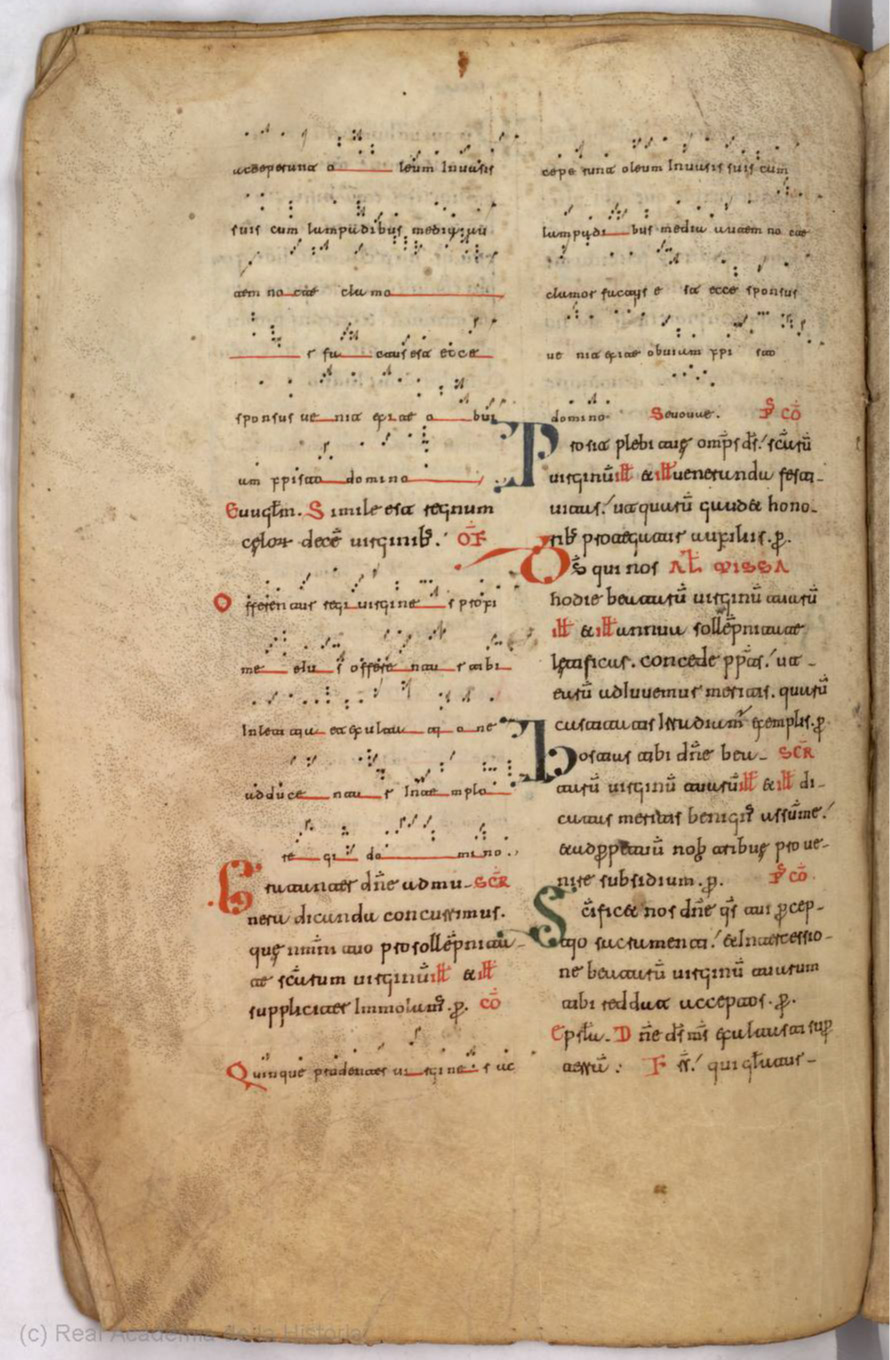 acceperunt o leum In uasis
suis cum lampadibus media au
tem nocte clamo
r fa ctus est ecce
sponsus ue nit exite o bui
am xpisto domino
Euuglm. Simile est regnum
celor decē uirginib. OF
Offerentur regi uirgine s proxi
me eius offere ntur tibi
In leti tia et exulta ti o ne
adduce ntu r In te mplo
re gi do mi no.
Gratanter dñe ad mu SCR
nera dicanda concurrimus.
que nm̄i tuo pro sollēpnita
te scārum uirginū ill & ill
suppliciter Immolam. p. CŌ
Quinque prudentes ui rgine s ac
cepe runt oleum In uasis suis cum
lampadi bus media autem no cte
clamor factus e st ecce sponsus
ue nit exite obuiam xpi sto
domino Seuouae. P CŌ
Prosit plebi tue omps ds. scārū
uirginū ill & ill ueneranda festi
uitas. ut quarū gaudet hono
rib protegatur auxiliis. p.
Ds qui nos AL MISSA
hodie beatarū uirginū tuarū
ill & ill annua sollēpnitate
letificas. concede ppts. ut
earū adIuuemur meritis. quarū
castitatis Irradiam exemplis. p
Hostias tibi dñe bea SCR
tarū uirginū tuarū ill & ill di
catas meritis benign assume.
& ad ppetuū nob tribue proue
nire subsidium. p. P CŌ
Scīficet nos dñe qs tui pcep
tio sacramenti. & Intercessio
ne beatarū uirginū tuarum
tibi reddat acceptos. p.
Epsla. Dñe ds ms exaltasti sup
terrā. F rs. qui glatur
(c) Real Academia de la Historia